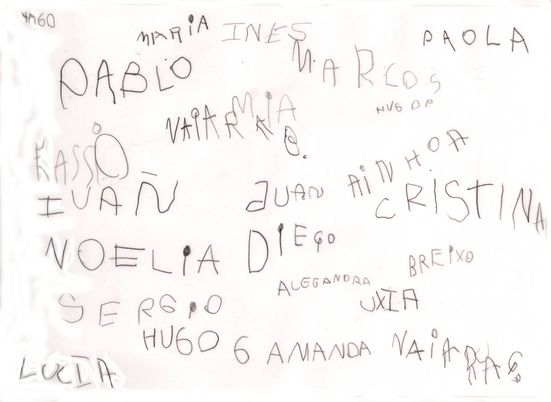 YAGO
MARIA
INES
PAOLA
PABLO
MARCOS
HUGO P
NAIARA
MIA
O.
AINHOA
IVAÑ
JUAN
CRISTINA
NOELIA
DIEGO
BREIXO
ALEGANDRA
UXIA
SERGIO
HUGO G
AMANDA
NAIARA G.
LUCIA